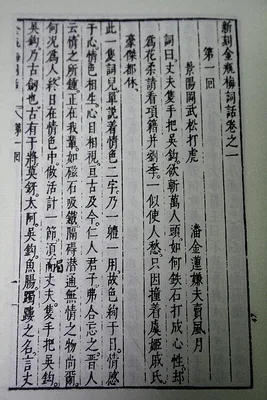 新刻金瓶梅詞話卷之一
第一回
景陽岡武松打虎
潘金蓮嫌夫賣風月
詞曰丈夫隻手把吳鈎欲斬萬人頭如何鐵石打成心性却
為花柔請看項籍并劉季一似使人愁只因撞着虞姬戚氏
豪傑都休
此一隻詞兒單說着情色二字乃一體一用故色絢于目情感
于心情色相生心目相視亘古及今仁人君子弗合忘之晉人
云情之所鍾正在我輩如磁石吸鐵隔碍潛通無情之物尚爾
何況為人終日在情色中做活計一節須而丈夫隻手把吳鈎
吳鈎乃古劍也古有干將莫鋣太阿吳鈎魚腸躅鏤之名言丈